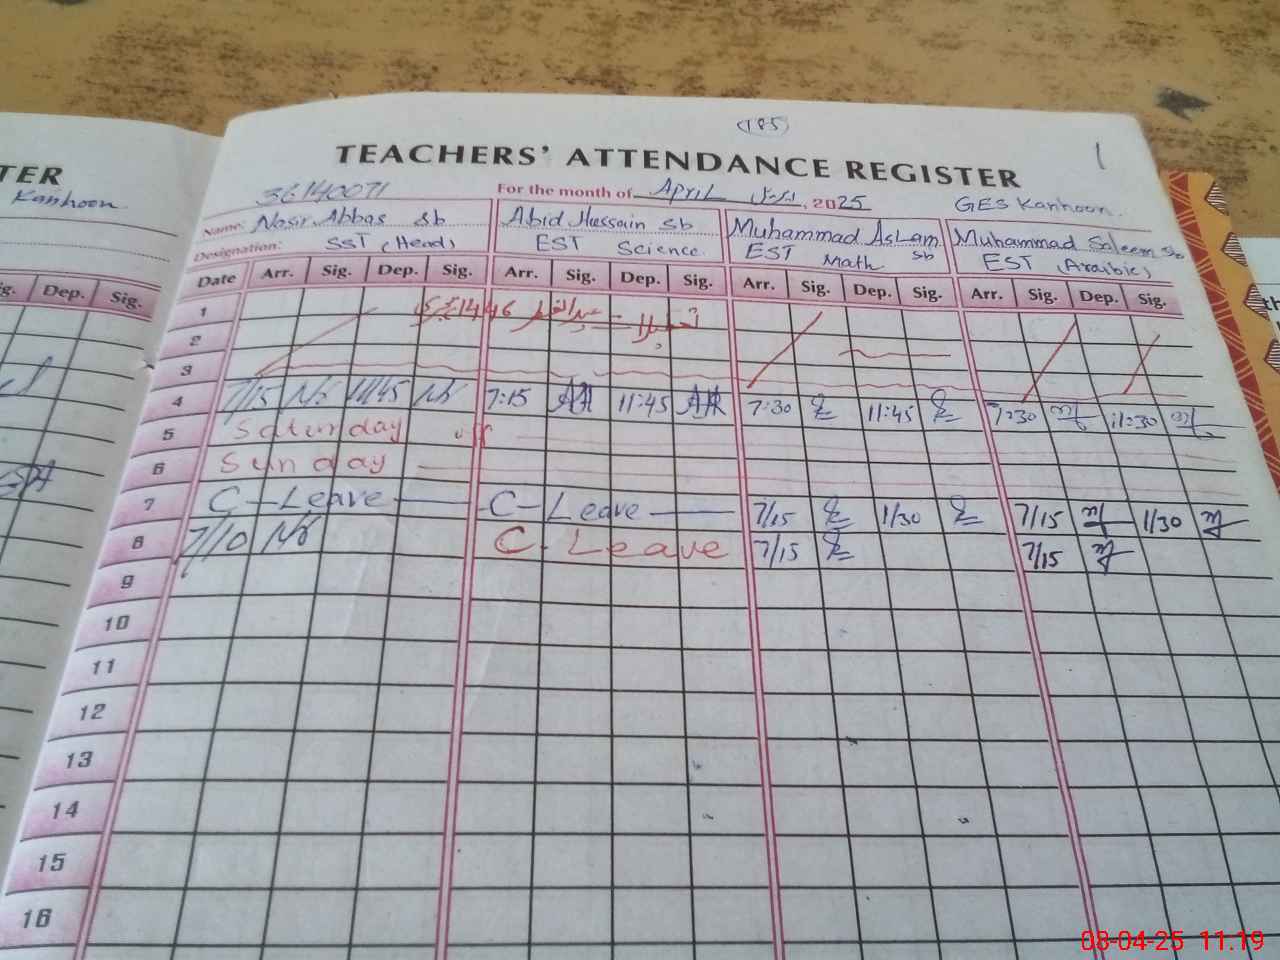 TER
Kanhoon
ig. Dep. Sig.
185
1
TEACHERS' ATTENDANCE REGISTER
36140071 For the month of April 2025 GES Kanhoon
Name: Nasir Abbas sb Abid Hussain sb Muhammad Aslam sb Muhammad Saleem sb
Designation: SST (Head) EST Science EST Math EST (Araibic)
Date Arr. Sig. Dep. Sig. Arr. Sig. Dep. Sig. Arr. Sig. Dep. Sig. Arr. Sig. Dep. Sig.
1 تعطیلات عید الفطر 1446
2
3
4 7/15 11/45 7:15 11:45 7:30 11:45 7:30 11:30
5 Saturday off
6 Sunday
7 C-Leave C-Leave 7/15 1/30 7/15 1/30
8 7/10 C-Leave 7/15 7/15
9
10
11
12
13
14
15
16
08-04-25 11.19